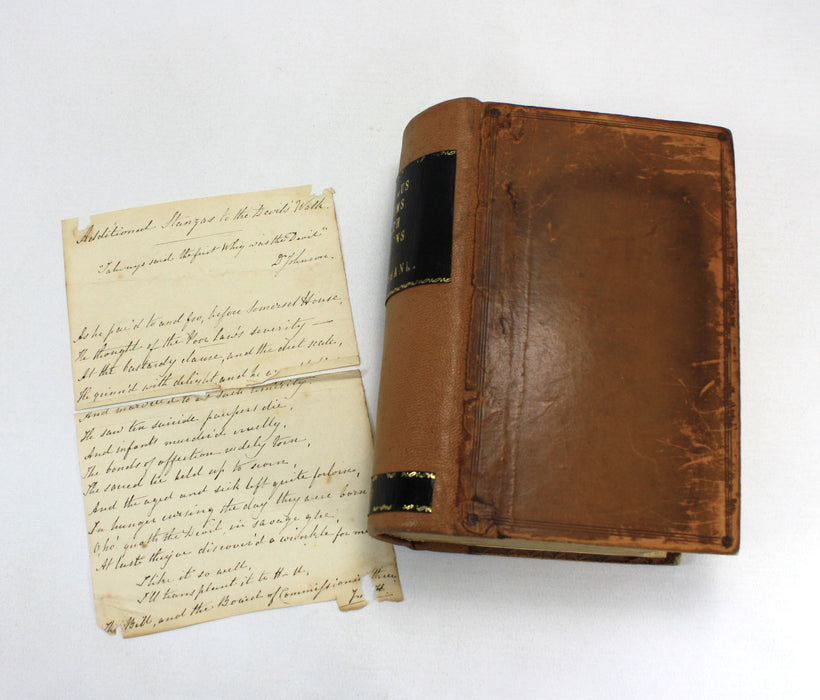 Additional Stanzas to the Devil's Walk.
"I always said the first Whig was the Devil"
Dr Johnson.
As he pac'd to and fro, before Somerset House,
He thought of the Poor Law's severity —
At the bastardy clause, and the diet scale,
He grinn'd with delight and
And marvell'd to such
He saw ten suicide paupers die,
And infants murder'd cruelly,
The bonds of affection rudely torn,
The sacred tie held up to scorn,
And the aged and sick left quite forlorn,
In hunger cursing the day they were born
Oho' quoth the Devil in savage glee,
At last they've discover'd a wrinkle for me
I like it so well,
I'll transplant it to H-ll,
The Bill, and the Board of Commissioners three
US
WS
H
WS
ANL.